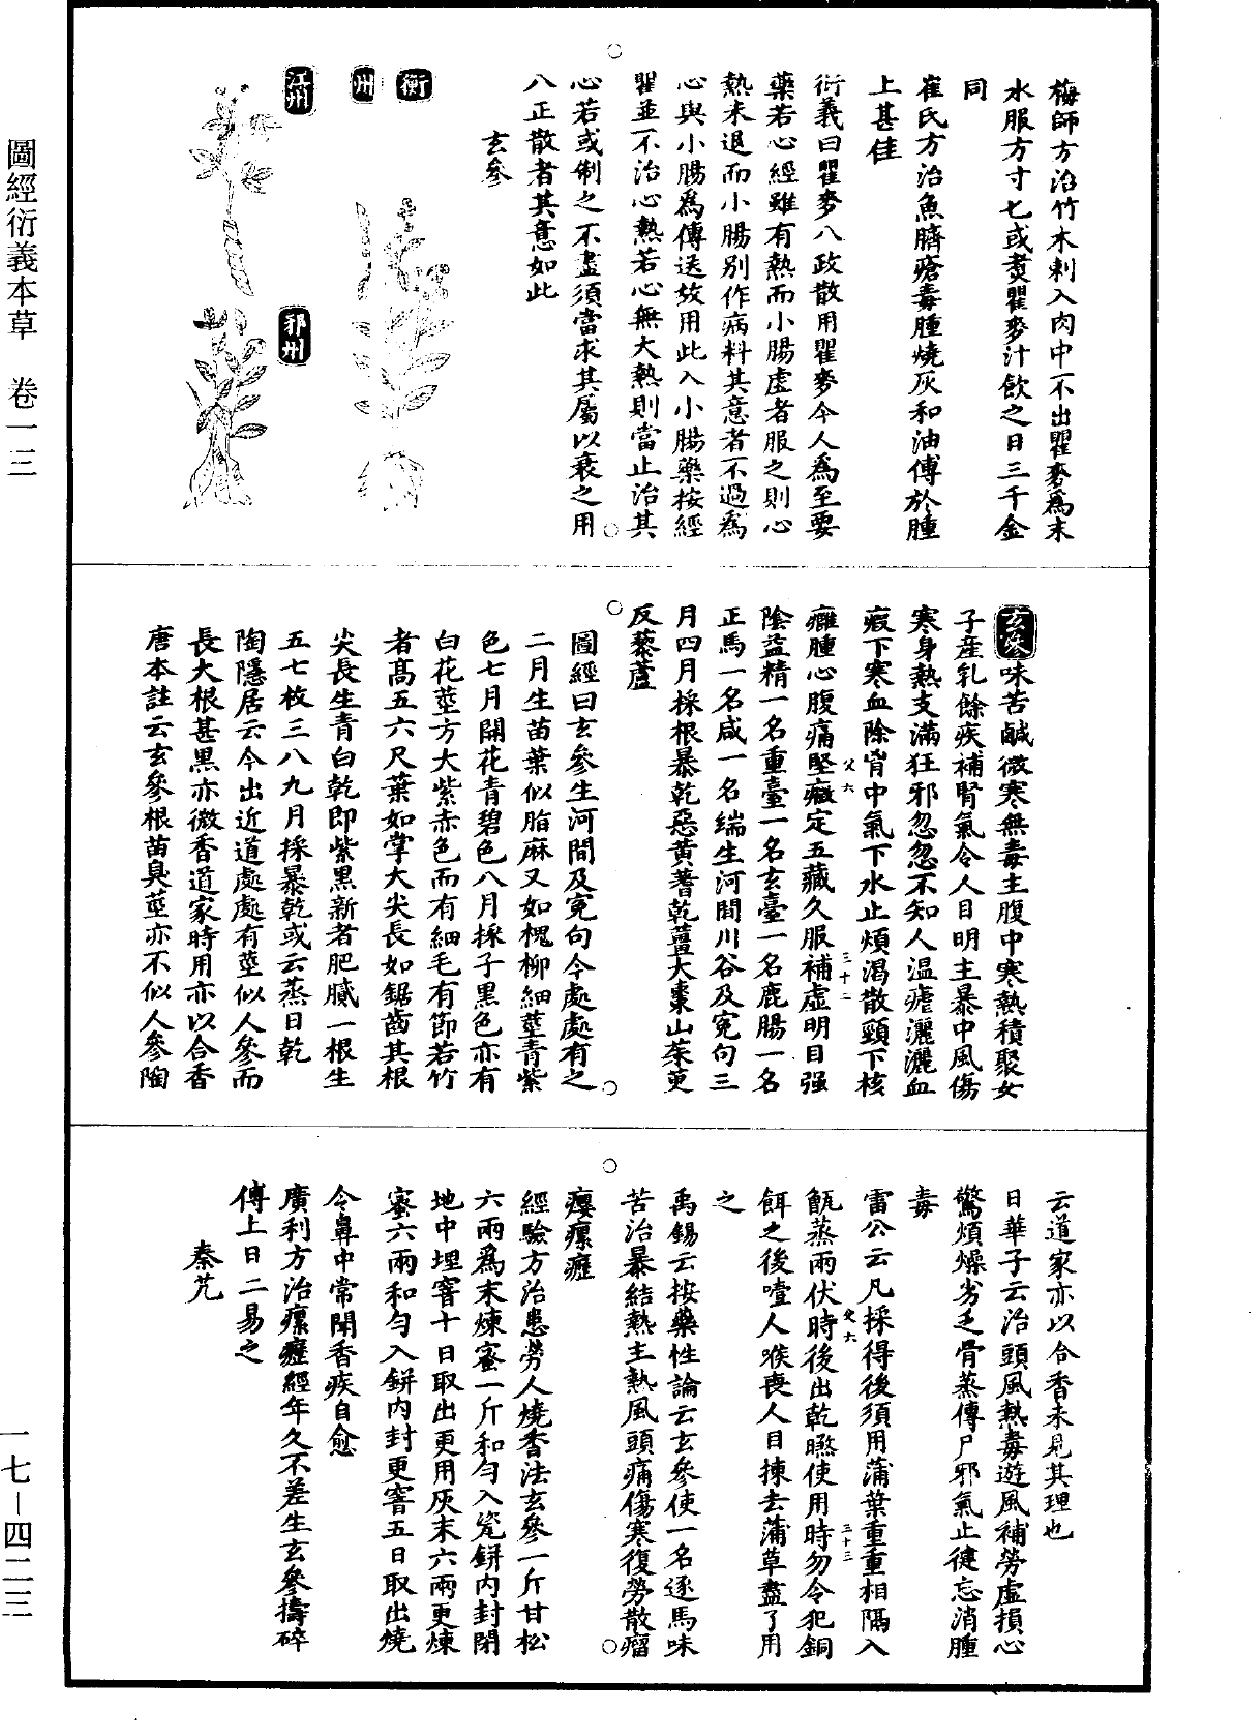 圖經衍義本草　卷一三
梅師方治竹木刺入肉中不出瞿麥爲末
水服方寸匕或煑瞿麥汁飲之日三千金
同
崔氏方治魚臍瘡毒腫燒灰和油傅於腫
上甚佳
衍義曰瞿麥八政散用瞿麥今人爲至要
藥若心經雖有熱而小腸虛者服之則心
熱未退而小腸別作病料其意者不過爲
心與小腸爲傳送故用此入小腸藥按經
瞿並不治心熱若心無大熱則當止治其
心若或制之不盡須當求其屬以衰之用
八正散者其意如此
玄參
衡州
江州
邢州
玄參味苦鹹微寒無毒主腹中寒熱積聚女
子產乳餘疾補腎氣令人目明主暴中風傷
寒身熱支滿狂邪忽忽不知人溫瘧灑灑血
瘕下寒血除胷中氣下水止煩渴散頸下核
癰腫心腹痛堅癥定五藏久服補虛明目强
陰益精一名重臺一名玄臺一名鹿腸一名
正馬一名咸一名端生河間川谷及寃句三
月四月採根暴乾惡黃蓍乾薑大棗山茱萸
反藜蘆
圖經曰玄參生河間及寃句今處處有之
二月生苗葉似脂麻又如槐柳細莖青紫
色七月開花青碧色八月採子黑色亦有
白花莖方大紫赤色而有細毛有節若竹
者高五六尺葉如掌大尖長如鋸齒其根
尖長生青白乾即紫黑新者肥膩一根生
五七枚三八九月採暴乾或云蒸日乾
陶隱居云今出近道處處有莖似人參而
長大根甚黑亦微香道家時用亦以合香
唐本註云玄參根苗臭莖亦不似人參陶
云道家亦以合香未見其理也
日華子云治頭風熱毒遊風補勞虛損心
驚煩燥劣乏骨蒸傳尸邪氣止健忘消腫
毒
雷公云凡採得後須用蒲葉重重相隔入
甑蒸兩伏時後出乾㬠使用時勿令犯銅
餌之後噎人喉喪人目揀去蒲草盡了用
之
禹錫云按藥性論云玄參使一名逐馬味
苦治暴結熱主熱風頭痛傷寒復勞散瘤
癭瘰癧
經驗方治患勞人燒香法玄參一斤甘松
六兩爲末煉蜜一斤和勻入瓷缾內封閉
地中埋窨十日取出更用灰末六兩更煉
蜜六兩和勻入缾內封更窨五日取出燒
令鼻中常聞香疾自愈
廣利方治瘰癧經年久不差生玄參擣碎
傅上日二易之
秦艽
一七－四二三